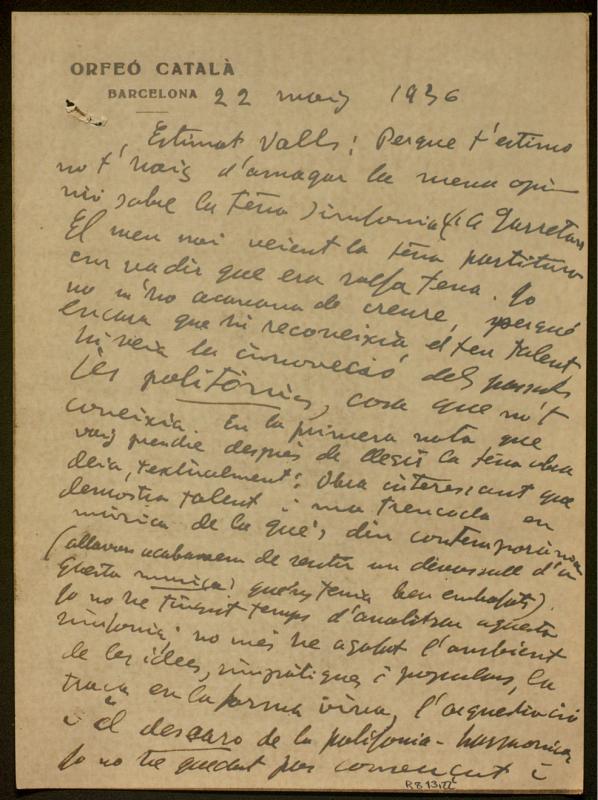 ORFEÓ CATALÀ
BARCELONA 22 maig 1936
Estimat Valls: Perque t'estimo
no t'haig d'amagar la meva opi-
nió sobre la teva simfonia (a Garreta
El meu noi veient la teva partitura
em va dir que era solfa teva. Jo
no m'ho acabava de creure, perqué
encara que hi reconeixia el teu talent
hi veia la innovació dels passats
ges politònics, cosa que no't
coneixia. En la primera nota que
vaig pendre després de llegir la teva obra
deia, textualment: Obra interessant que
demostra talent i ma trencada en
música de la que's diu contemporànea
(allavors acabavem de sentir un d'a
questa musica) que'ns tenia ben embafats).
Jo no he tingut temps d'analitzar aquesta
simfonia; no més he agafat l'ambient
de les idees, simpàtiques i populars, la
traça en la forma viva, l'orquestració
i el descaro de la polifonia-harmonica
Jo no he quedat pas convençut i
R 813/22